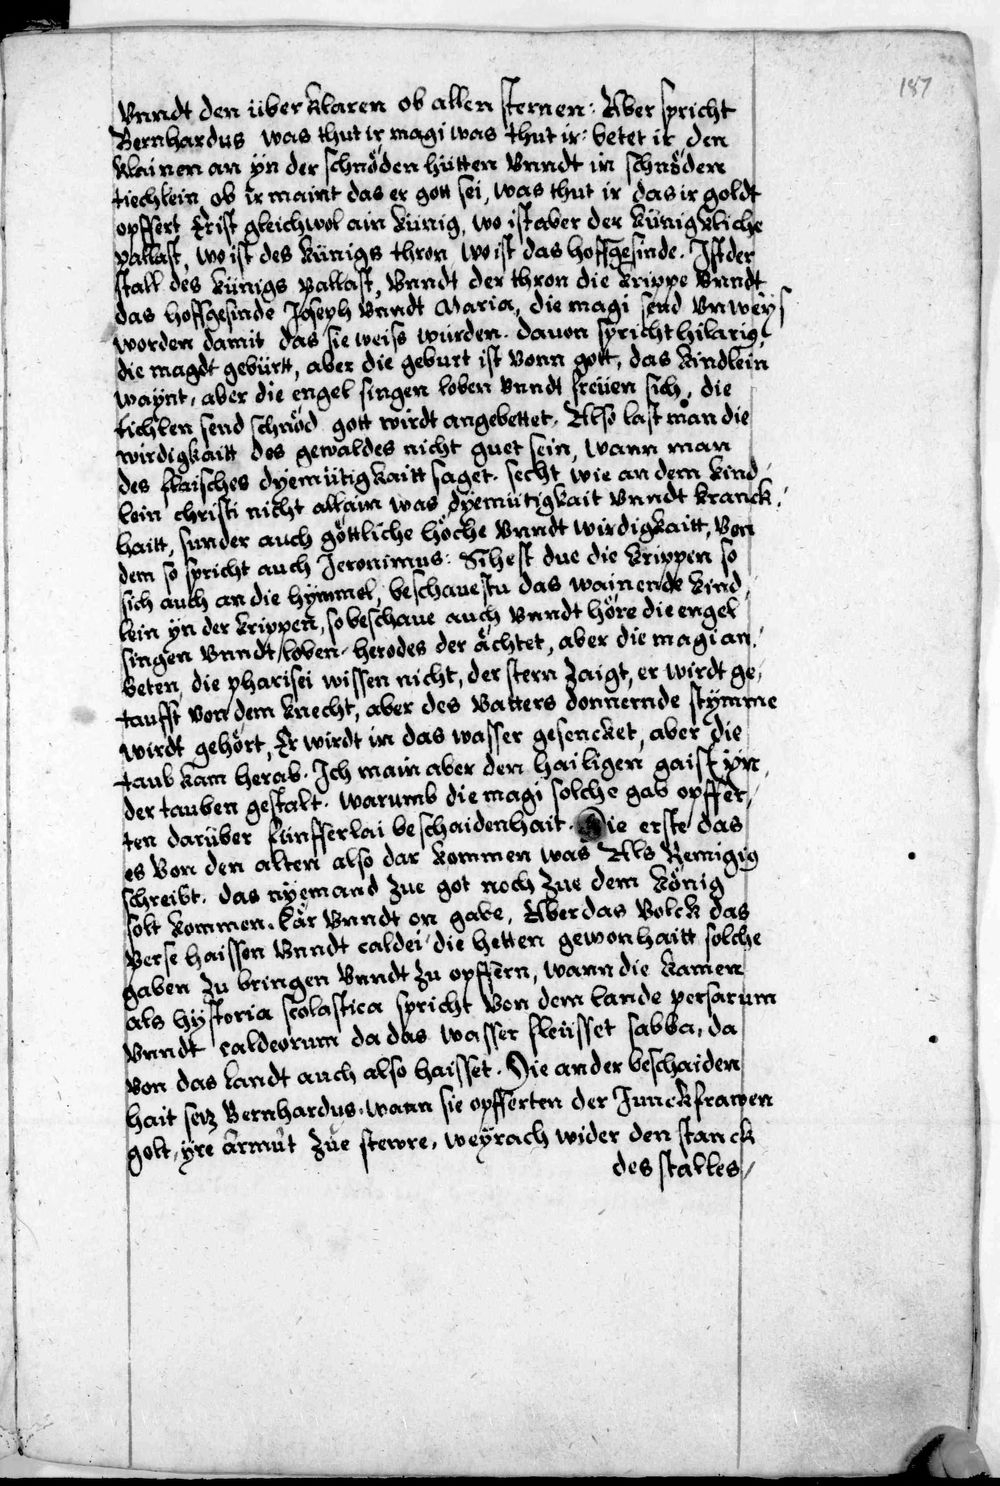 187
Vnndt den über klaren ob allen sternen: Aber spricht
Bernhardus was thut ir magi was thut ir: betet ir den
klainen an yn der schnöden hütten Vnndt in schnödem
tiechlein, ob ir maint das er gott sei, was thut ir das ir goldt
opffert Er ist gleichwol ain künig, wo ist aber der künigkliche
pallast, wo ist des künigs thron wo ist das hoffgesinde. Ist der
stall des künigs pallast, Vnndt der thron die krippe Vnndt
das hoffgesinde Joseph Vnndt Maria, die magi send Vnweÿs
worden damit das sie weiss wurden. dauon spricht hilarig,
die magdt gebürtt, aber die geburt ist vonn gott, das kindlein
waÿnt, aber die engel singen loben vnndt freüen sich, die
tichlen send schnöd gott wirdt angebettet. Also last man die
wirdigkaitt des gewaldes nicht guet sein, wann man
des flaisches dyemütigkaitt saget. secht wie an dem kind,
lein christi nicht allain was dyemütigkait Vnndt kranck,
haitt, sunder auch göttliche höche Vnndt wirdigkaitt, von
dem so spricht auch Jeronimus: Sihest due die krippen so
sich auch an die hymmel, beschauestu das wainende kind,
lein yn der krippen, so beschaue auch Vnndt höre die engel
singen Vnndt loben. herodes der ächtet, aber die magi an,
beten, die pharisei wissen nicht, der stern zaigt, er wirdt ge,
taufft von dem knecht, aber des vatters donnernde stymme
wirdt gehört, Er wirdt in das wasser gesencket, aber die
taub kam herab. Ich main aber den hailigen gaist yn
der tauben gestalt. warumb die magi solche gab opffer,
ten darüber fünfferlai beschaidenhait. Die erste das
es von den alten also dar kommen was Als Remigig
schreibt. das nyemand zue got noch zue dem König
solt kommen. lär Vnndt on gabe, Aber das Volck das
Perse haissen Vnndt caldei die hetten gewonhaitt solche
gaben zu bringen Vnndt zu opffern, wann die kamen
als hystoria scolastica spricht von dem lande persarum
Vnndt caldeorum da das wasser fleüsset sabba, da
von das landt auch also haisset. Die ander beschaiden
hait setz Bernhardus. wann sie opfferten der Junckfrawen
golt, yre armut zue stewre, weÿrach wider den stanck
des stalles,